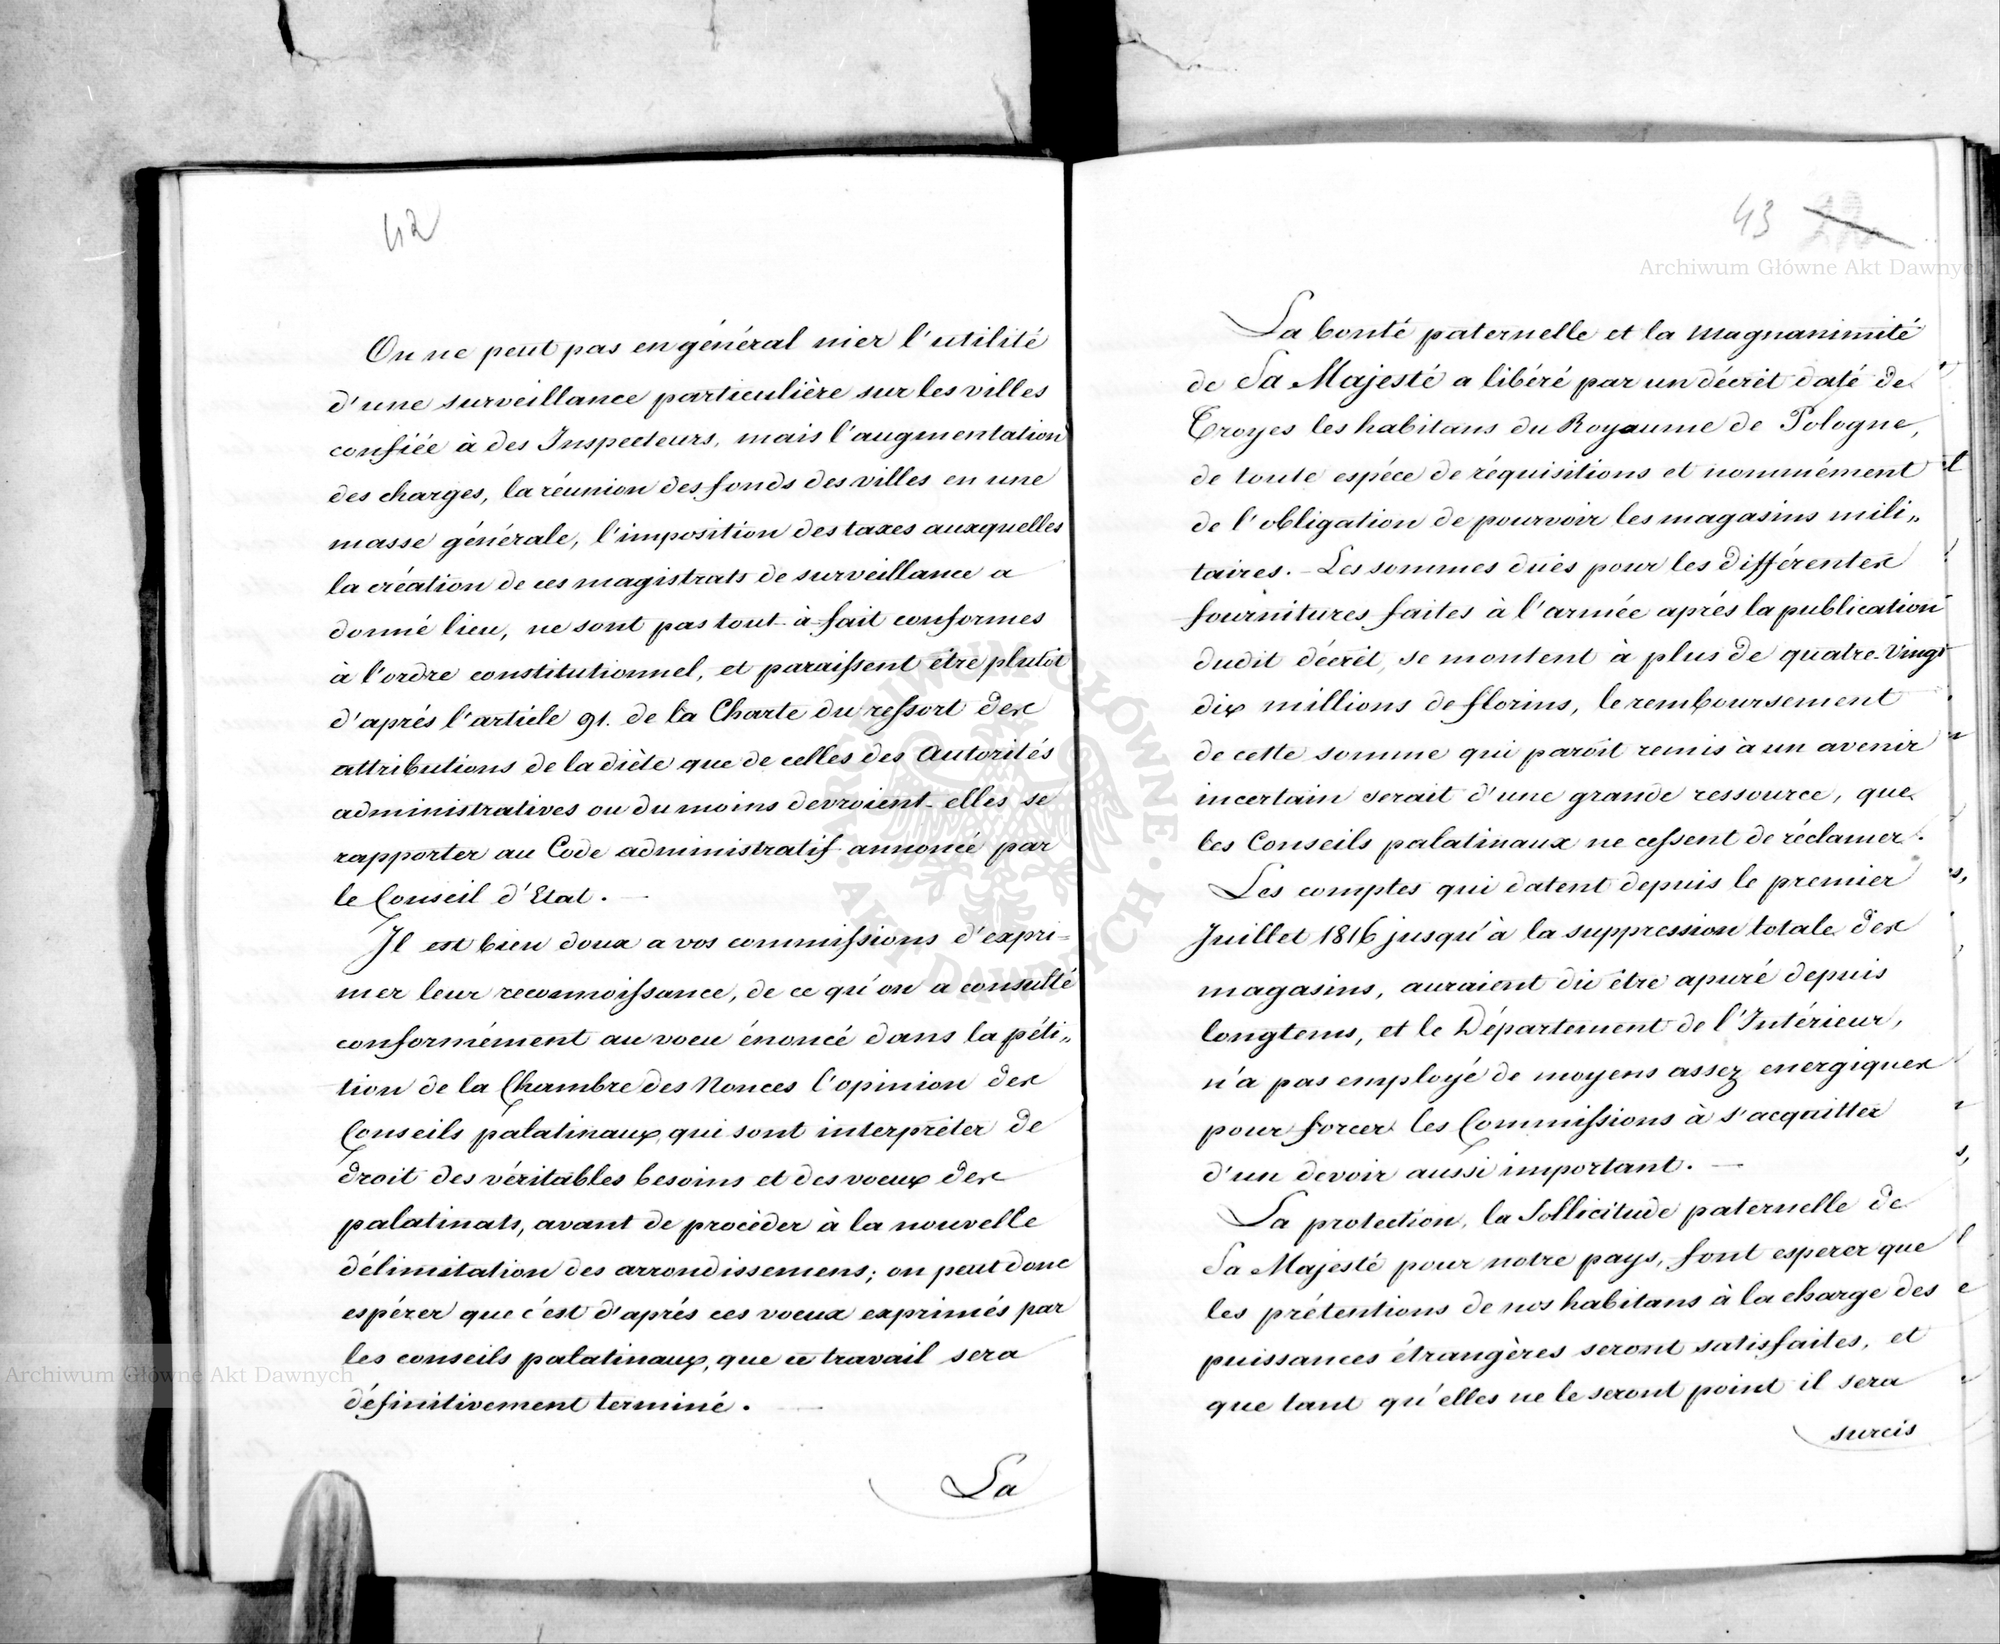 42
On ne peut pas en général nier l'utilité
d'une surveillance particulière sur les villes
confiée à des Inspecteurs, mais l'augmentation
des charges, la réunion des fonds des villes en une
masse générale, l'imposition des taxes auxquelles
la création de ces magistrats de surveillance a
donné lieu, ne sont pas tout-à-fait conformes
à l'ordre constitutionnel, et paraissent être plutôt
d'aprés l'article 91. de la Charte du ressort des
attributions de la diète que de celles des Autorités
administratives ou du moins devroient-elles se
rapporter au Code administratif annoncé par
le Conseil d'Etat. —
Il est bien doux a vos commissions d'expri-
mer leur reconnoissance, de ce qu'on a consulté
conformément au voeu énoncé dans la péti„
tion de la Chambre des Nonces l'opinion des
Conseils palatinaux, qui sont interprêter de
droit des véritables besoins et des voeux des
palatinats, avant de procéder à la nouvelle
délimitation des arrondissemens; on peut donc
espérer que c'est d'aprés ces voeux exprimés par
les conseils palatinaux, que ce travail sera
définitivement terminé. —
La
43
La bonté paternelle et la Magnanimité
de Sa Majesté a libéré par un décrèt daté de
Troyes les habitans du Royaume de Pologne,
de toute espéce de réquisitions et nommément
de l'obligation de pourvoir les magasins mili„
taires. — Les sommes dues pour les différentes
fournitures faites à l'armée aprés la publication
dudit décrèt, se montent à plus de quatre-Vingt
dix millions de florins, le remboursement
de cette somme qui paroît remis à un avenir
incertain serait d'une grande ressource, que
les Conseils palatinaux ne cessent de réclamer.
Les comptes qui datent depuis le premier
Juillet 1816 jusqu'à la suppression totale des
magasins, auraient dû être apuré depuis
longtems, et le Département de l'Intérieur,
n'a pas employé de moyens assez energiques
pour forcer les Commissions à s'acquitter
d'un devoir aussi important. —
La protection, la Sollicitude paternelle de
Sa Majesté pour notre pays, font esperer que
les prétentions de nos habitans à la charge des
puissances étrangères seront satisfaites, et
que tant qu'elles ne le seront point il sera
surcis
Archiwum Główne Akt Dawnych
Archiwum Główne Akt Dawnych
ARCHIWUM GŁÓWNE • AKT DAWNYCH •